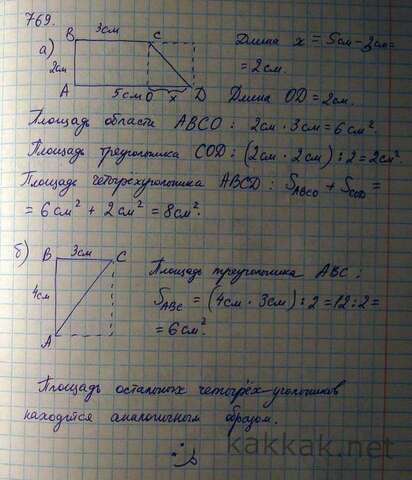 769.
а)
3см
B
C
2см
A
5см
O
x
D
Длина x = 5см - 3см =
= 2см.
Длина OD = 2см.
Площадь области ABCO : 2см · 3см = 6 см².
Площадь треугольника COD : (2см · 2см) : 2 = 2см².
Площадь четырехугольника ABCD : S_ABCO + S_COD =
= 6 см² + 2 см² = 8 см².
б)
B
3см
C
4см
A
Площадь треугольника ABC :
S_ABC = (4см · 3см) : 2 = 12 : 2 =
= 6 см².
Площадь остальных четырёх-угольников
находится аналогичным образом.
kakkak.net